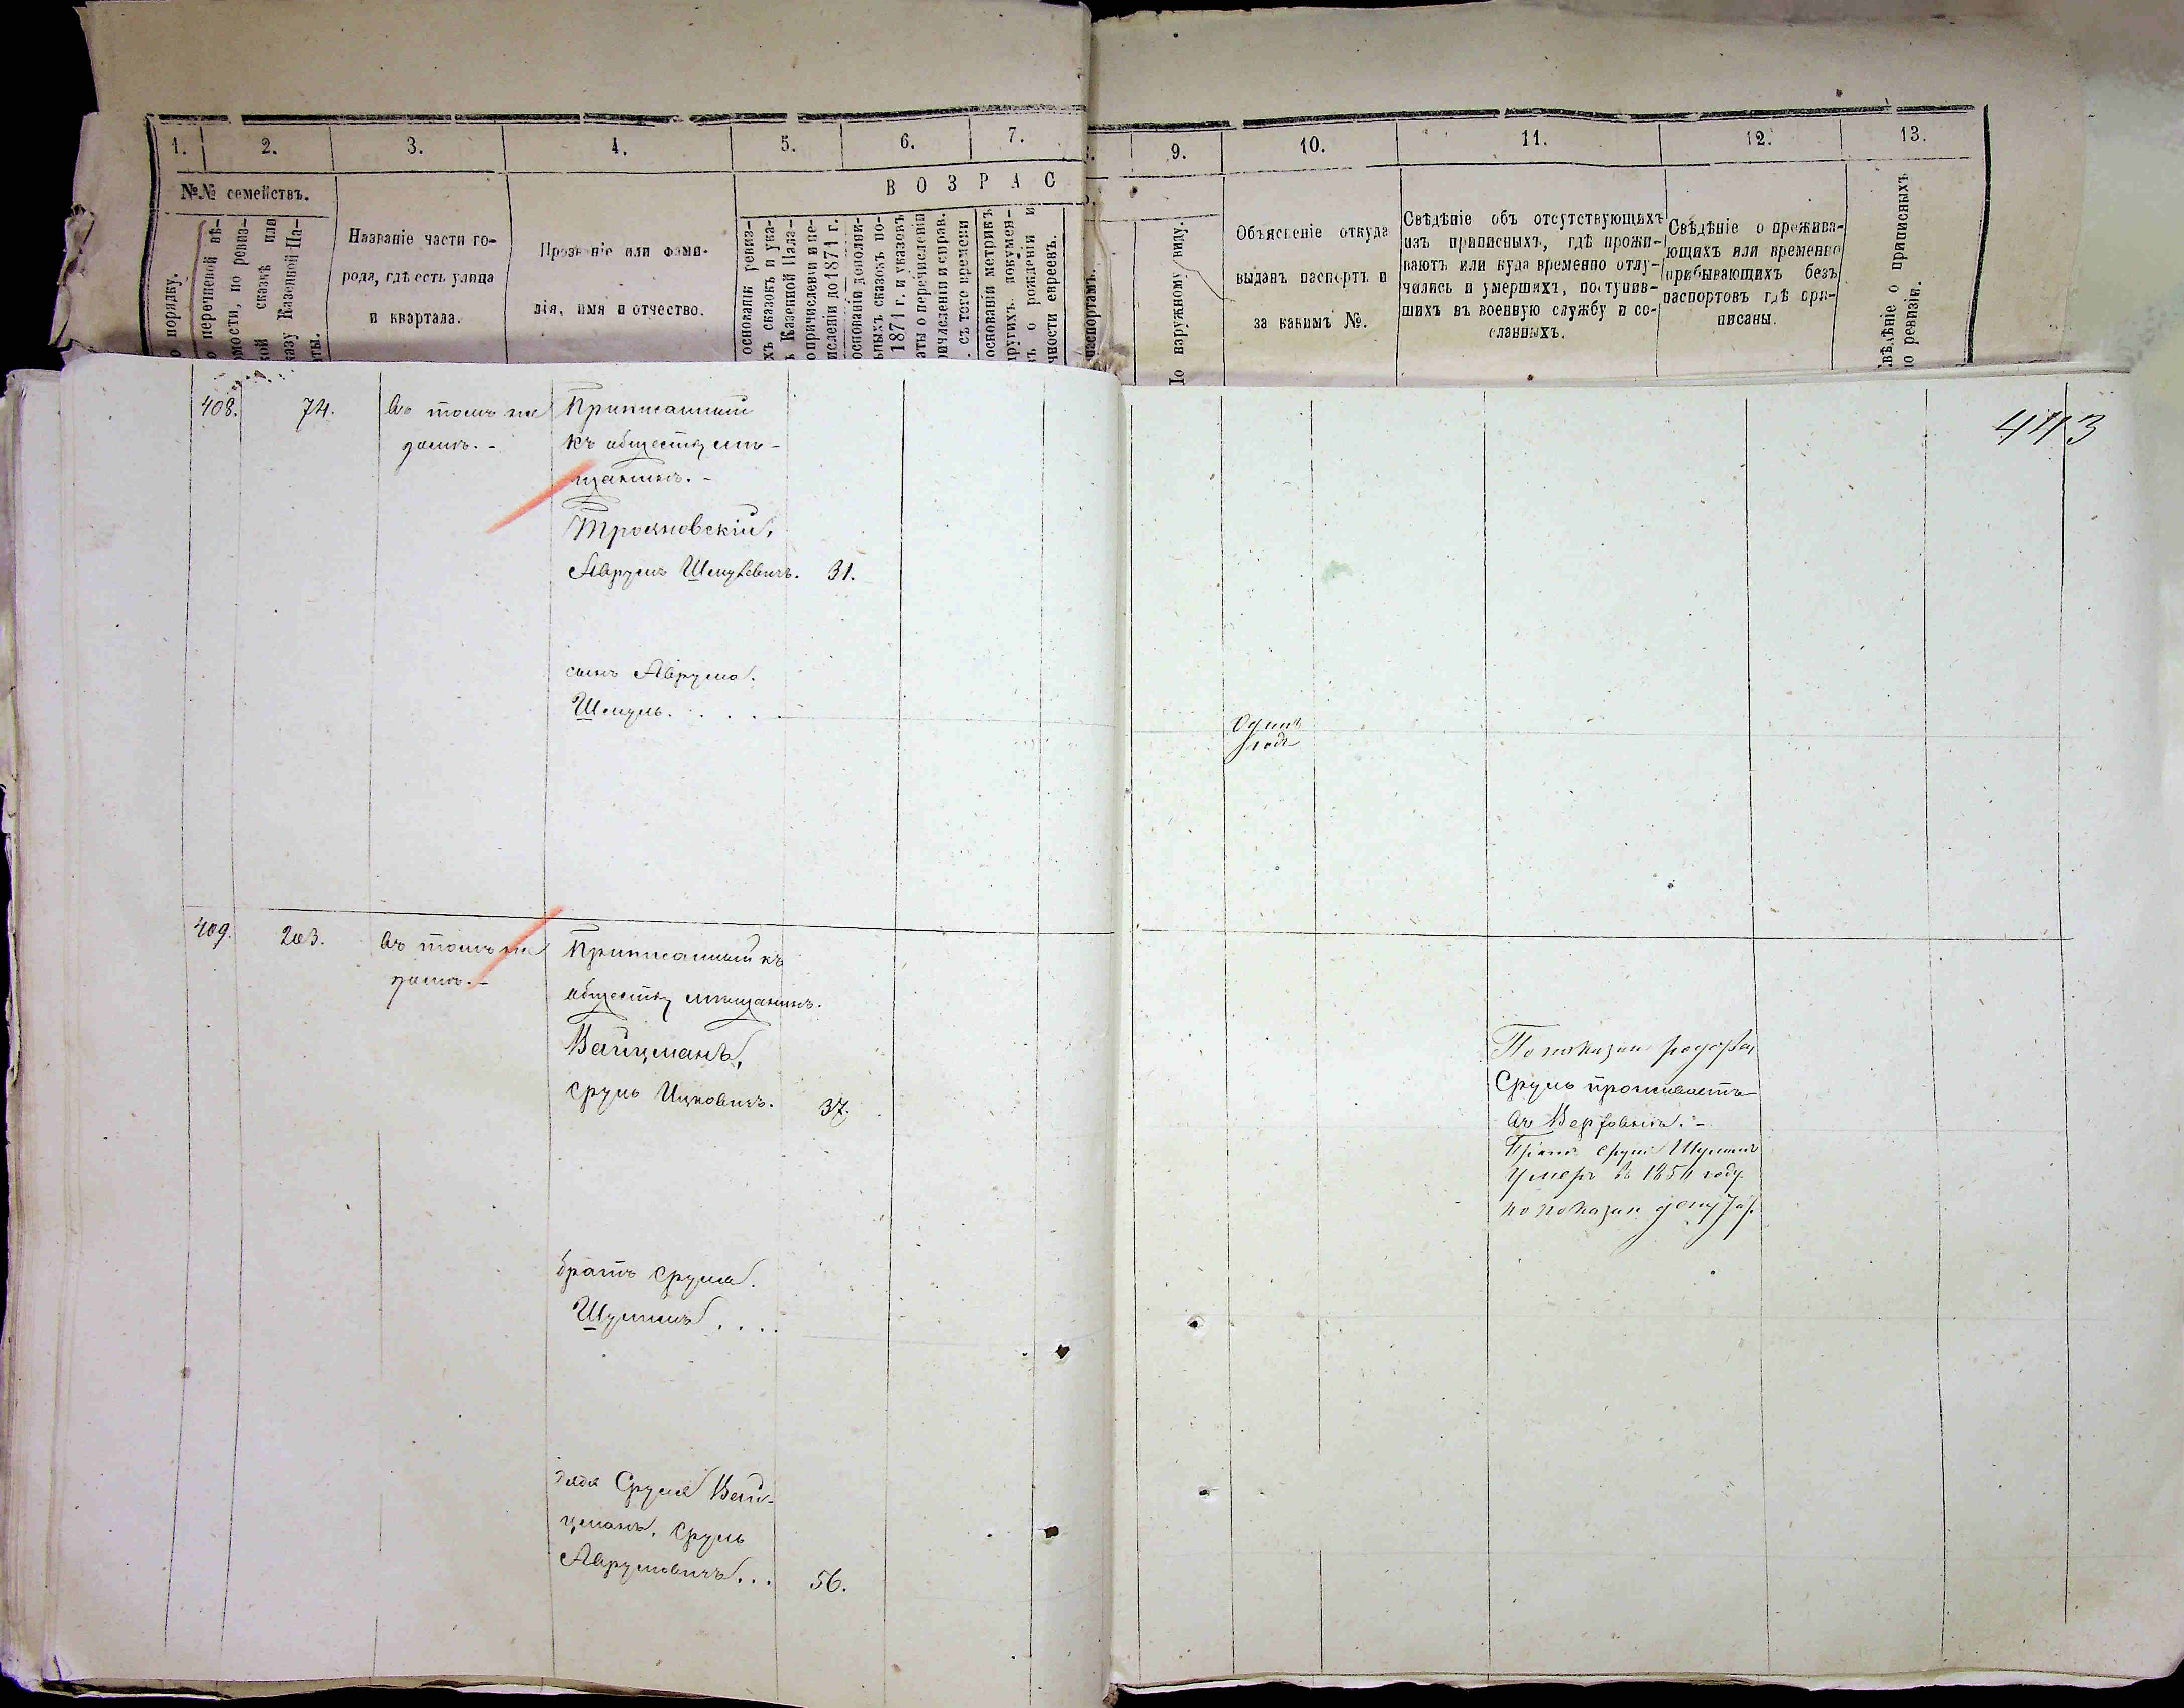 1.
2.
3.
4.
5.
6.
7.
№№ семействъ.
о порядку.
о перечневой вѣ-
омости, по ревиз-
кой сказкѣ или
казу Казенной Па-
аты.
Названіе части го-
рода, гдѣ есть улица
и квартала.
Прозваніе или фами-
лія, имя и отчество.
ВОЗРАС
основаніи ревиз-
хъ сказокъ и ука-
ъ Казенной Пала-
о причисленіи и пе-
исленіи до 1871 г.
основаніи дополни-
ьныхъ сказокъ по-
1871 г. и указовъ
аты о перечисленіи
ричисленіи и справ.
съ того времени
основаніи метрикъ
ругихъ докумен-
ъ о рожденіи и
чности евреевъ.
паспортамъ.
9.
10.
11.
12.
13.
По наружному виду.
Объясненіе откуда
выданъ паспортъ и
за какимъ №.
Свѣдѣніе объ отсутствующихъ
изъ приписныхъ, гдѣ прожи-
ваютъ или куда временно отлу-
чились и умершихъ, поступив-
шихъ въ военную службу и со-
сланныхъ.
Свѣдѣніе о прожива-
ющихъ или временно
прибывающихъ безъ
паспортовъ гдѣ при-
писаны.
вѣдѣніе о приписныхъ
по ревизіи.
443
408.
74.
Въ томъ же
домѣ.-
Приписанный
къ обществу мѣ-
щанинъ.-
Трояновскій,
Аврумъ Шмулевичъ. 31.
сынъ Аврума.
Шмуль.....
Одинъ
годъ
409.
203.
Въ томъ же
домѣ.-
Приписанный къ
обществу мѣщанинъ.
Вайцманъ,
Сруль Ицковичъ. 37.
братъ Сруля.
Шулимъ....
дядя Сруля Вай-
цманъ, Сруль
Аврумовичъ... 56.
По показан
Сруль проживаетъ
въ
Братъ Сруля Шулимъ
умеръ въ 1854 году
по показан депутат.